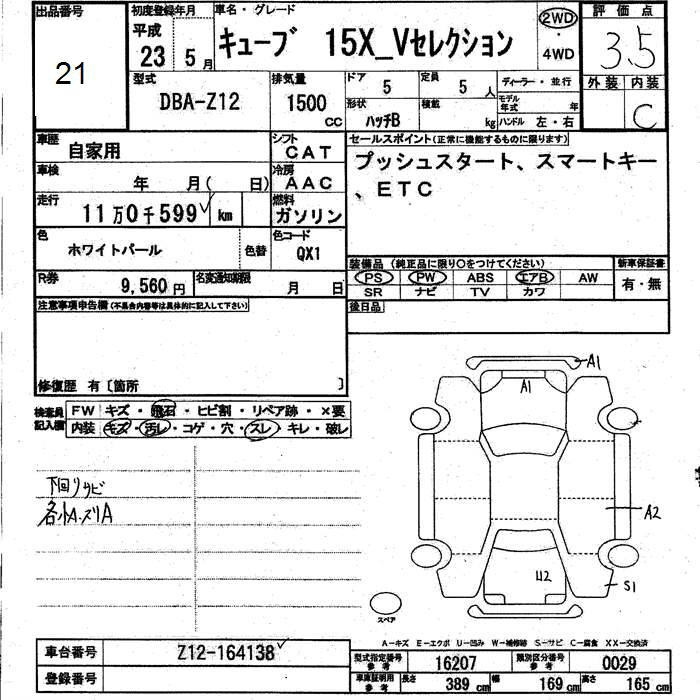 出品番号 初度登録年月 車名・グレード 評価点
21 平成 23 5月 キューブ 15X_Vセレクション 2WD・4WD 3.5
型式 排気量 ドア 定員 ディーラー・並行 外装 内装
DBA-Z12 1500cc 5 5人 モデル年式 年 C
形状 ハッチB 積載 kg ハンドル 左・右
車歴 自家用 シフト CAT セールスポイント(正常に機能するものに限ります)
車検 年 月( 日) 冷房 AAC プッシュスタート、スマートキー
走行 11万0千599km 燃料 ガソリン 、ETC
色 ホワイトパール 色替 色コード QX1
装備品(純正品に限り○をつけてください) 新車保証書
R券 9,560円 名変通知期限 月 日 PS PW ABS エアB AW 有・無
SR ナビ TV カワ
注意事項申告欄(不具合内容等は具体的に記入して下さい) 後日品
修復歴 有〔箇所 〕
検査員記入欄 FW キズ・飛石・ヒビ割・リペア跡・×要
内装 キズ・汚レ・コゲ・穴・スレ・キレ・破レ
下回りサビ
各小A.スリA
A1
A1
A2
U2
S1
スペア
A-キズ E-エクボ U-凹み W-補修跡 S-サビ C-腐食 XX-交換済
車台番号 Z12-164138 型式指定番号 参考 16207 類別区分番号 参考 0029
登録番号 車庫証明用 参考 長さ 389cm 幅 169cm 高さ 165cm